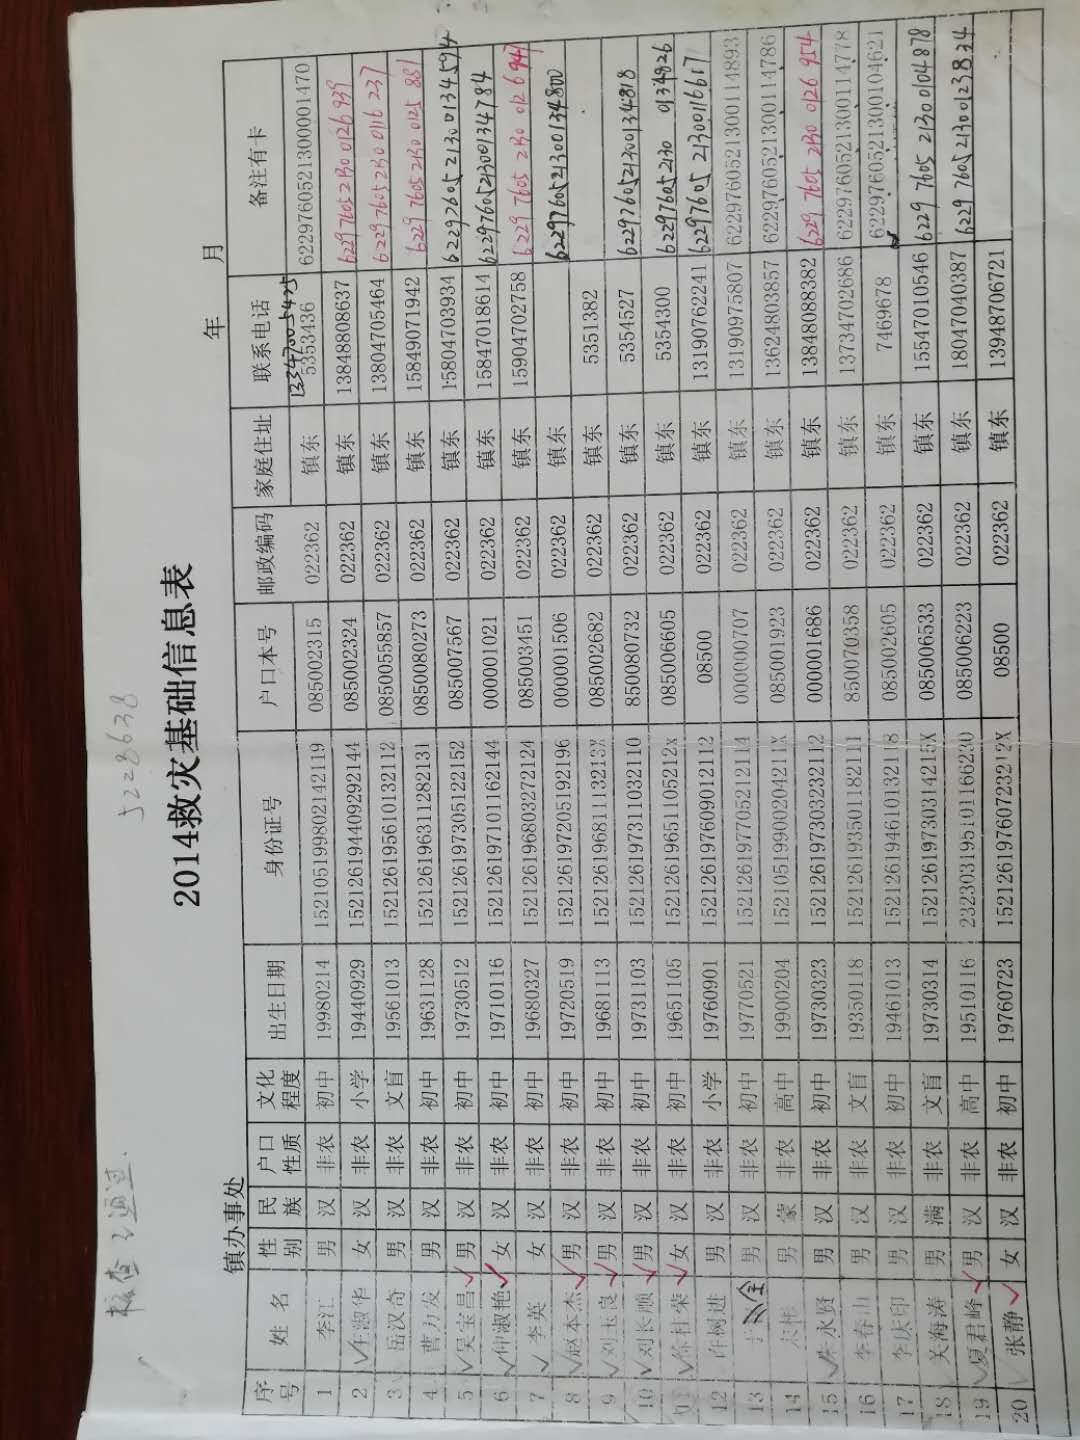 检查已通过.
5228638
2014救灾基础信息表
镇办事处 年 月
序号 姓名 性别 民族 户口性质 文化程度 出生日期 身份证号 户口本号 邮政编码 家庭住址 联系电话 备注有卡
1 李江 男 汉 非农 初中 19980214 152105199802142119 085002315 022362 镇东 5353436 13347005425 6229760521300001470
2 淑华 女 汉 非农 小学 19440929 152126194409292144 085002324 022362 镇东 13848808637 6229760521300126939
3 岳汉奇 男 汉 非农 文盲 19561013 152126195610132112 0850055857 022362 镇东 13804705464 6229760521300116237
4 曹力发 男 汉 非农 初中 19631128 152126196311282131 0850080273 022362 镇东 15849071942 6229760521300125881
5 吴宝昌 男 汉 非农 初中 19730512 152126197305122152 085007567 022362 镇东 15804703934 6229760521300134594
6 仲淑艳 女 汉 非农 初中 19710116 152126197101162144 000001021 022362 镇东 15847018614 6229760521300134784
7 李英 女 汉 非农 初中 19680327 152126196803272124 085003451 022362 镇东 15904702758 6229760521300126947
8 赵本杰 男 汉 非农 初中 19720519 152126197205192196 000001506 022362 镇东 6229760521300134800
9 刘玉良 男 汉 非农 初中 19681113 15212619681113213X 085002682 022362 镇东 5351382
10 刘长顺 男 汉 非农 初中 19731103 152126197311032110 850080732 022362 镇东 5354527 6229760521300134818
杜荣 女 汉 非农 初中 19651105 15212619651105212X 085006605 022362 镇东 5354300 6229760521300134826
12 许树进 男 汉 非农 小学 19760901 152126197609012112 08500 022362 镇东 13190762241 6229760521300116617
13 全 男 汉 非农 初中 19770521 152126197705212114 000000707 022362 镇东 13190975807 6229760521300114893
14 男 蒙 非农 高中 19900204 15210519900204211X 085001923 022362 镇东 13624803857 6229760521300114786
15 永贤 男 汉 非农 初中 19730323 152126197303232112 000001686 022362 镇东 13848088382 6229760521300126954
16 李春山 男 汉 非农 文盲 19350118 152126193501182111 850070358 022362 镇东 13734702686 6229760521300114778
17 李庆印 男 汉 非农 初中 19461013 152126194610132118 085002605 022362 镇东 7469678 6229760521300104621
18 关海涛 男 满 非农 文盲 19730314 15212619730314215X 085006533 022362 镇东 15547010546 6229760521300104878
19 夏君峰 男 汉 非农 高中 19510116 232303195101166230 085006223 022362 镇东 18047040387 6229760521300123834
20 张静 女 汉 非农 初中 19760723 15212619760723212X 08500 022362 镇东 13948706721